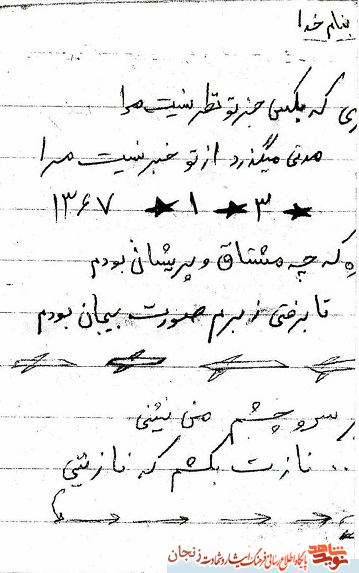 بنام خدا
که بکسی جز تو نظر نیست مرا
مدتی میگذرد از تو خبر نیست مرا
۱۳۶۷ ★ ۱ ★ ۳ ★
که چه مشتاق و پریشان بودم
تا برفتی ز برم صورت بیجان بودم
سر و چشم من نشینی
نازت بکشم که نازنینی
نوید شاهد
پایگاه اطلاع رسانی فرهنگ ایثار و شهادت زنجان